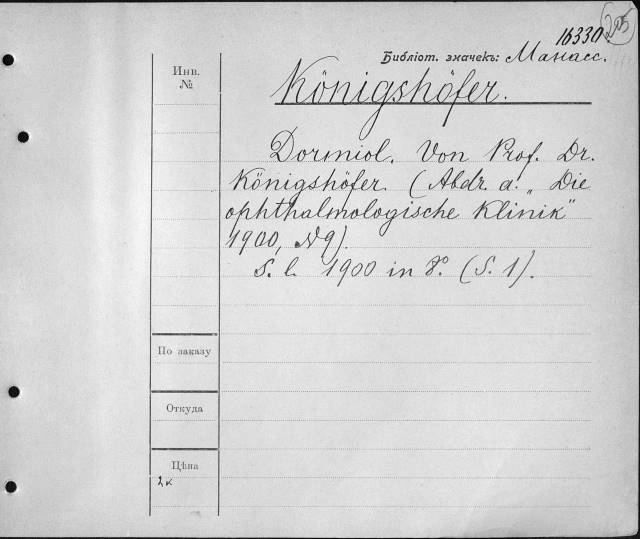 205
16330.
Библіот. значекъ: Манасс.
Инв.
№
Königshöfer.
Dormiol. Von Prof. Dr.
Königshöfer. (Abdr. a. „Die
ophthalmologische Klinik"
1900, N9).
S. l. 1900 in 8º. (S. 1).
По заказу
Откуда
Цѣна